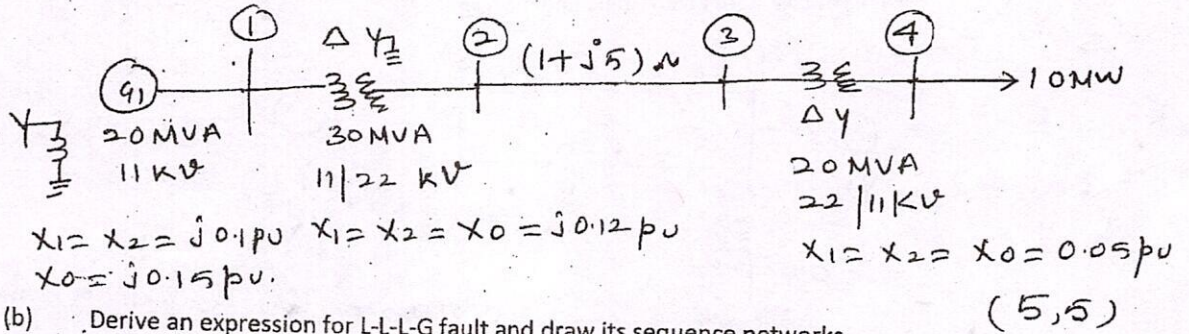 1 2 3 4
Δ Y (1+j5) Ω
G1 10MW
Y 20MVA 30MVA Δ Y
11 KV 11/22 KV 20MVA
22/11KV
X1= X2= j0.1pu X1= X2= X0= j0.12pu
X0= j0.15pu. X1= X2= X0= 0.05pu
(5,5)
(b) Derive an expression for L-L-L-G fault and draw its sequence networks